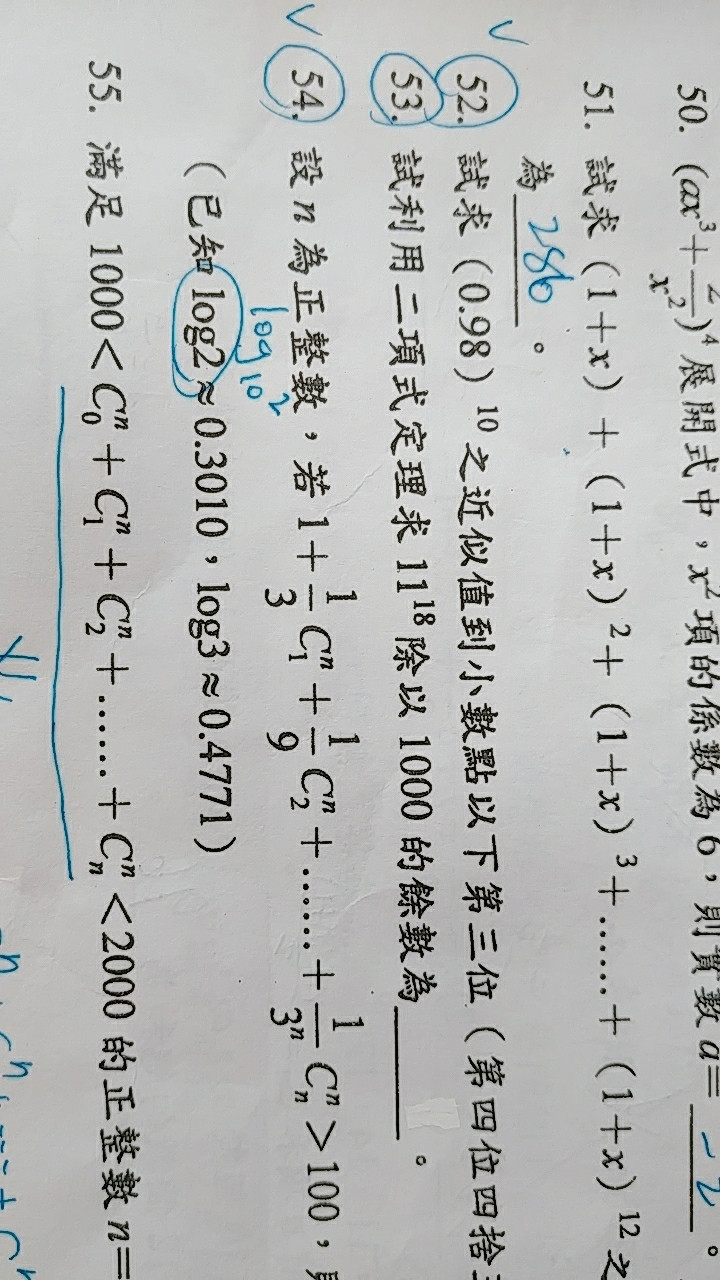 50. (ax³+2/x²)⁴ 展開式中，x²項的係數為 6，則實數 a= -2 。
51. 試求（1+x）+（1+x）²+（1+x）³+……+（1+x）¹² 之
為 286 。
52. 試求（0.98）¹⁰ 之近似值到小數點以下第三位（第四位四捨
53. 試利用二項式定理求 11¹⁸ 除以 1000 的餘數為 ______ 。
54. 設 n 為正整數，若 1+1/3 C₁ⁿ+1/9 C₂ⁿ+……+1/3ⁿ Cₙⁿ>100，
log₁₀2
（已知 log2≈0.3010，log3≈0.4771）
55. 滿足 1000<C₀ⁿ+C₁ⁿ+C₂ⁿ+……+Cₙⁿ<2000 的正整數 n=